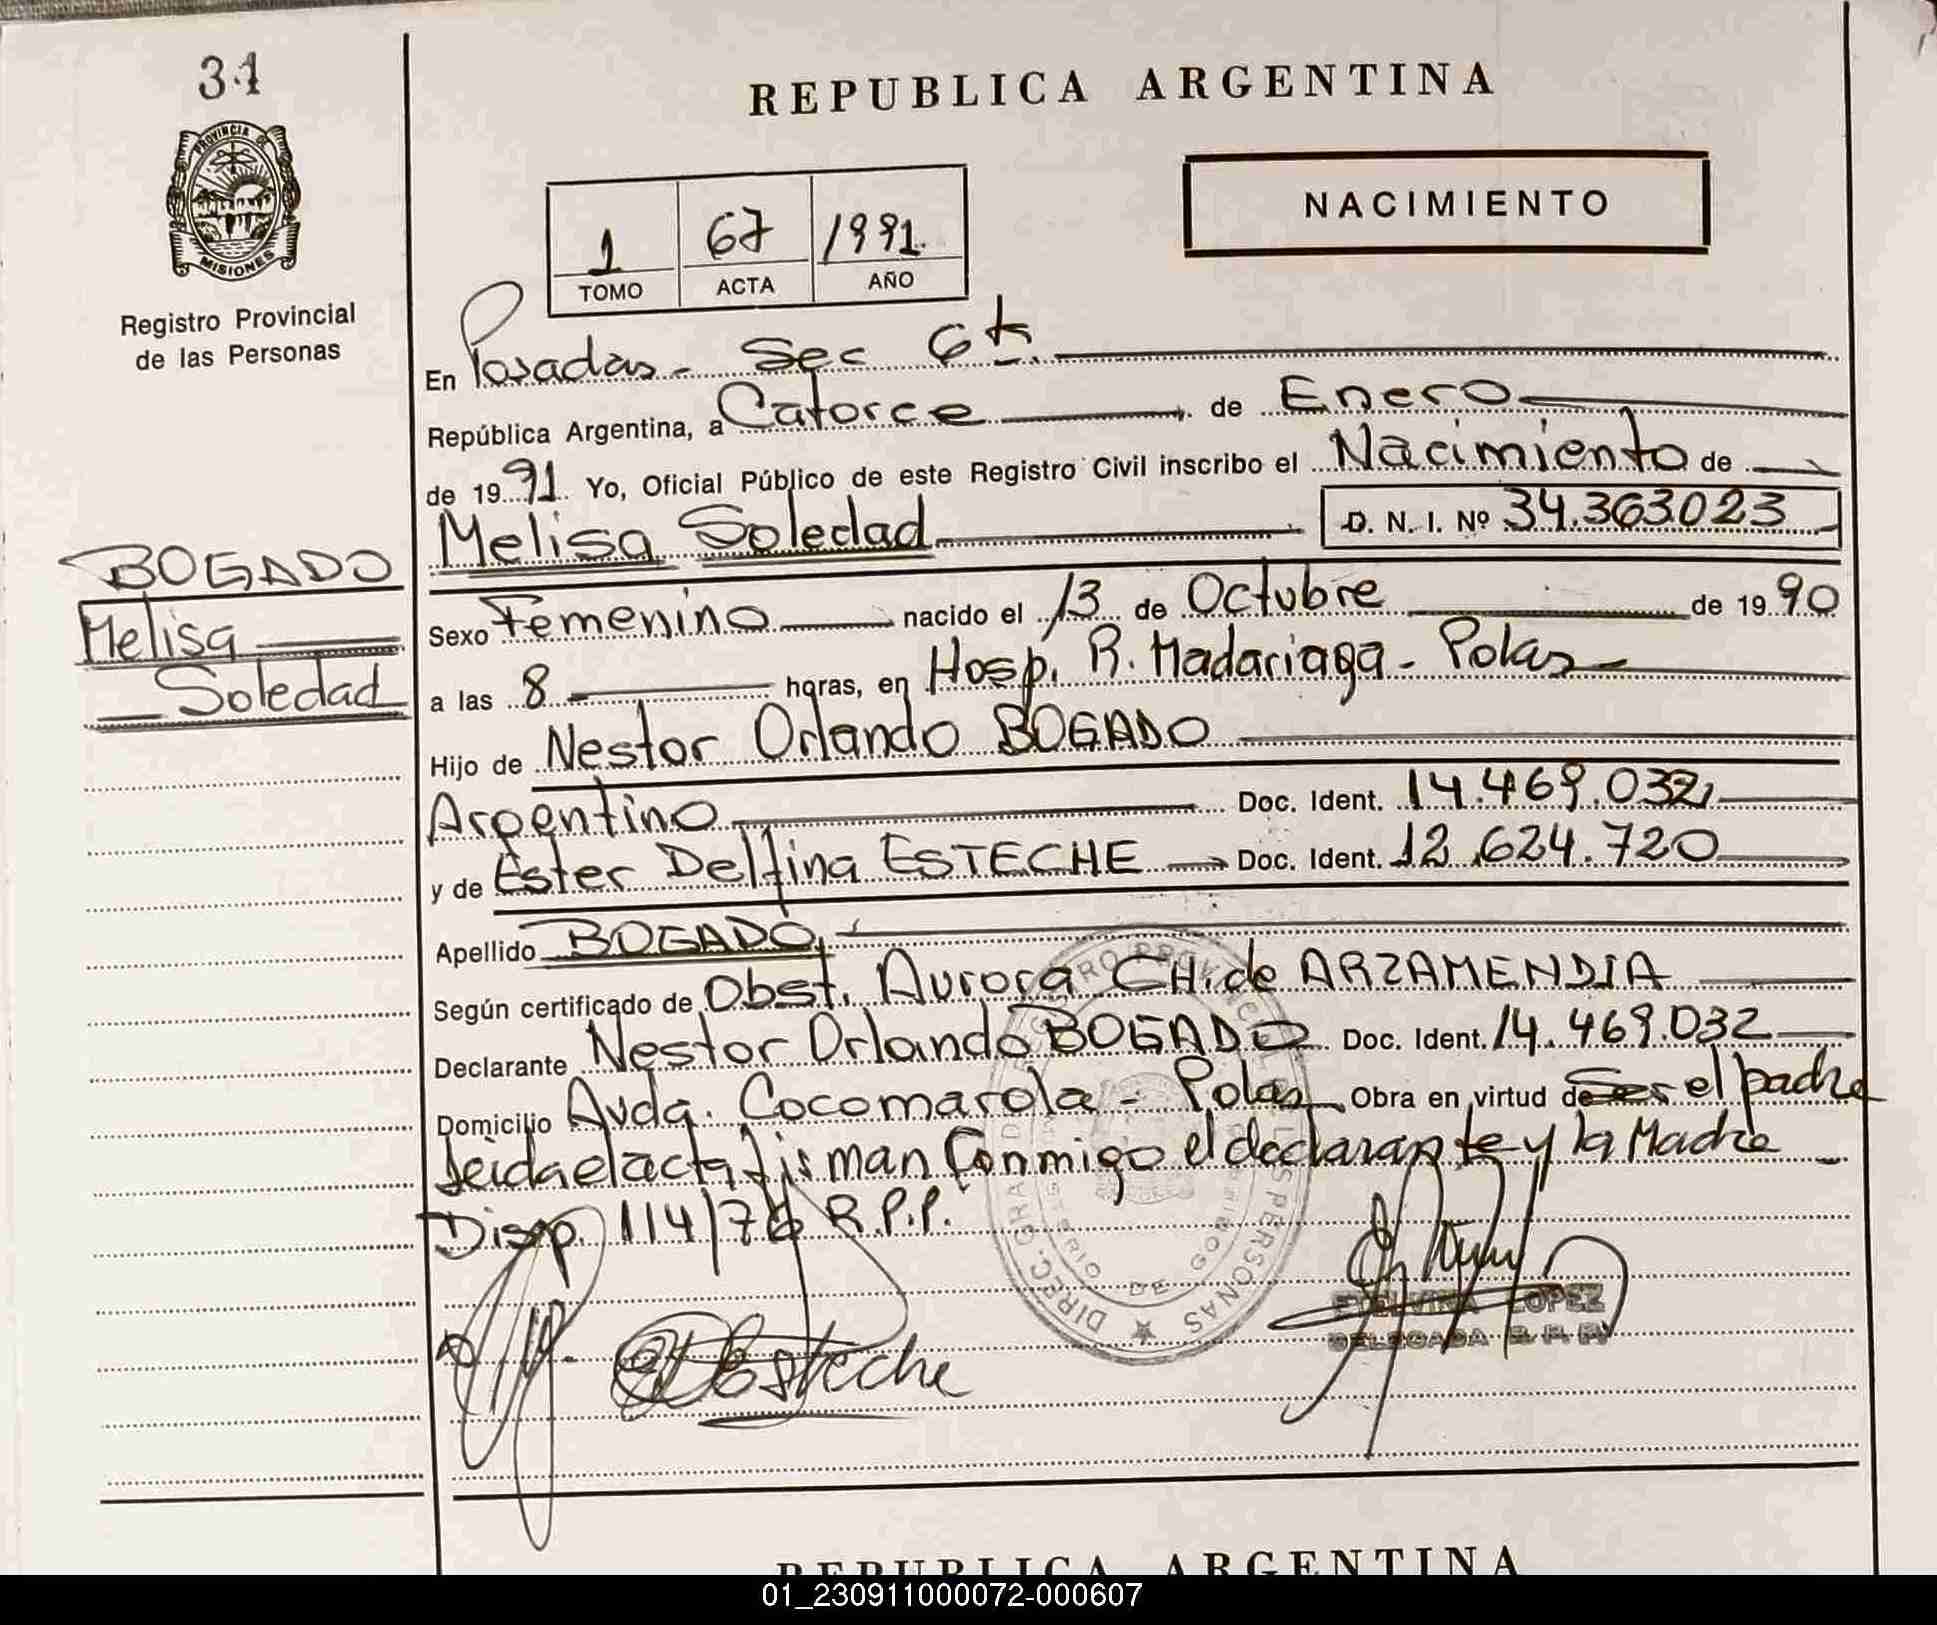 31
PROVINCIA DE
MISIONES
Registro Provincial
de las Personas
BOGADO
Melisa
Soledad
REPUBLICA ARGENTINA
NACIMIENTO
1 67 1991
TOMO ACTA AÑO
En Posadas - Sec 6ta
República Argentina, a Catorce de Enero
de 1991 Yo, Oficial Público de este Registro Civil inscribo el Nacimiento de
Melisa Soledad D. N. I. Nº 34.363.023
Sexo Femenino nacido el 13 de Octubre de 1990
a las 8 horas, en Hosp. R. Madariaga - Pdas
Hijo de Nestor Orlando BOGADO
Argentino Doc. Ident. 14.469.032
y de Ester Delfina ESTECHE Doc. Ident. 12.624.720
Apellido BOGADO
Según certificado de Obst. Aurora CH. de ARZAMENDIA
Declarante Nestor Orlando BOGADO Doc. Ident. 14.469.032
Domicilio Avda. Cocomarola - Pdas Obra en virtud de Ser el padre
leida el acta firman Conmigo el declarante y la Madre
Disp. 114/76 R.P.P.
DIREC. GRAL. REGISTRO PROVINCIAL PERSONAS
MINISTERIO DE GOBIERNO
Esteche
ETELVINA LOPEZ
DELEGADA R.P.P.
REPUBLICA ARGENTINA
01_230911000072-000607